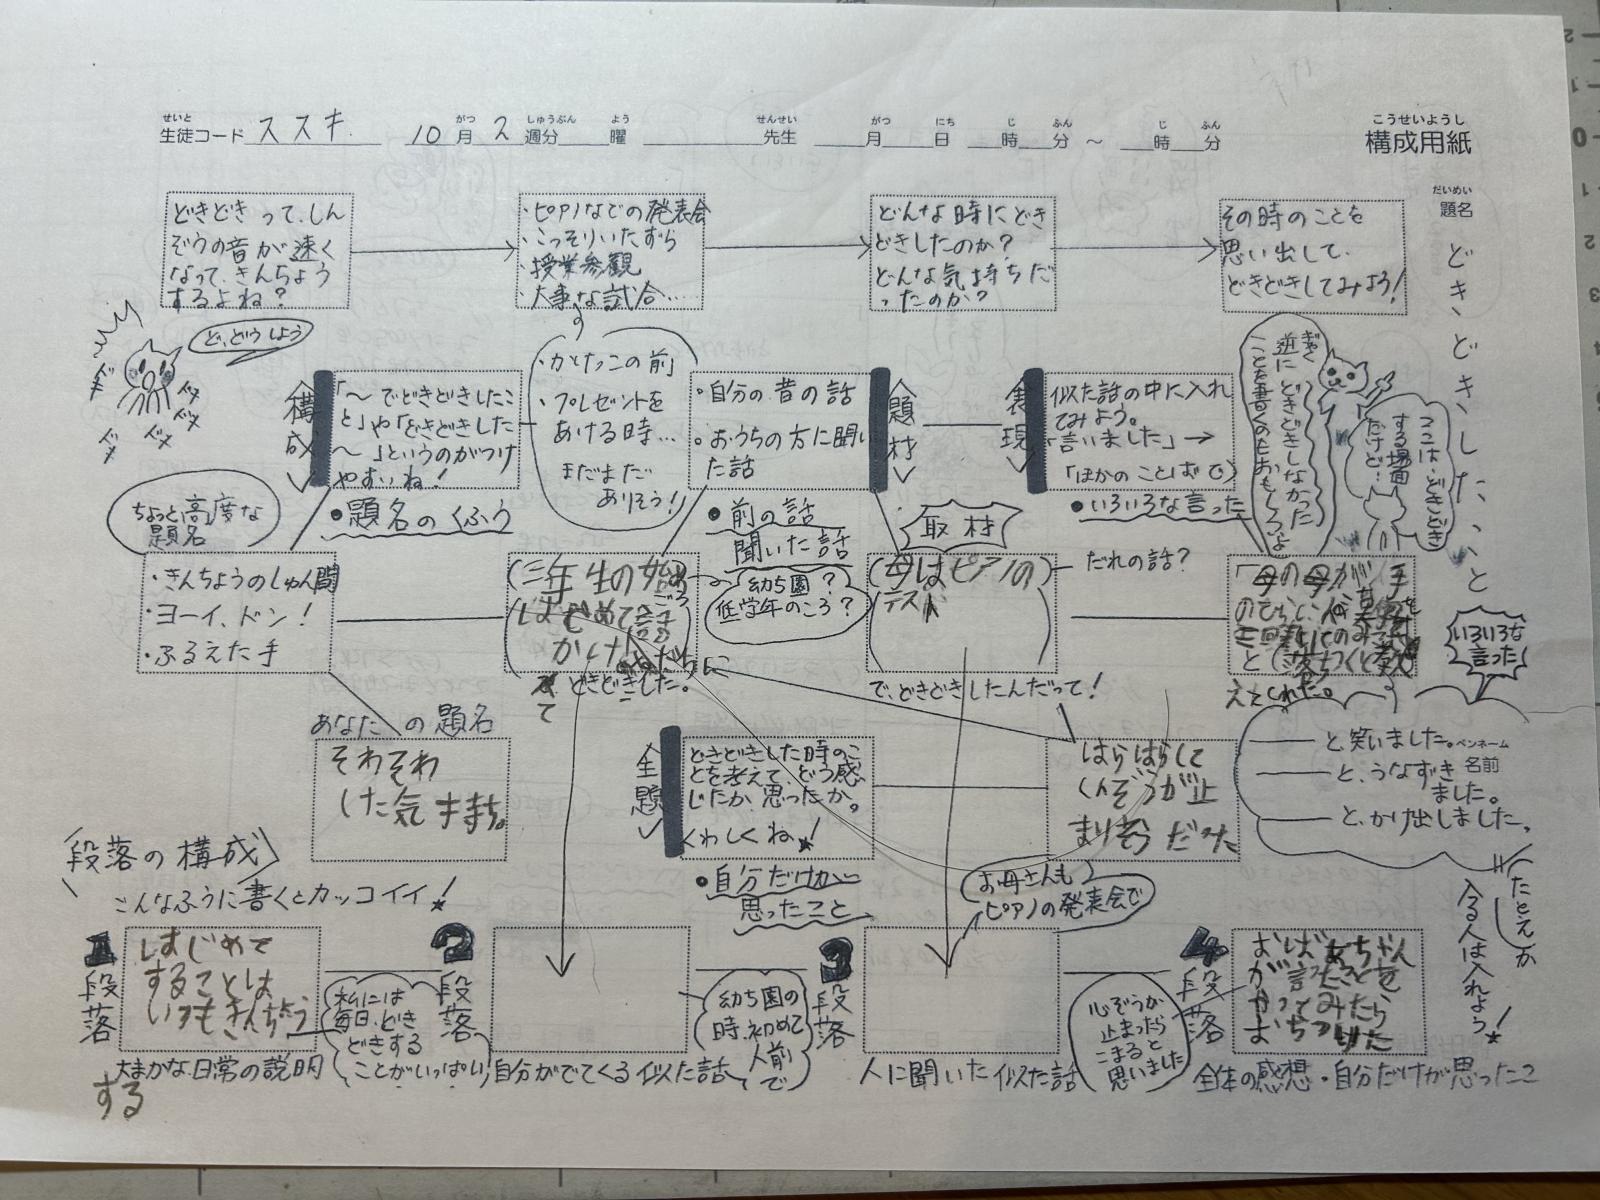 せいと がつ しゅうぶん よう せんせい がつ にち じ ふん じ ふん こうせいようし
生徒コード ススキ 10月 2週分 曜 先生 月 日 時 分 ～ 時 分 構成用紙
だいめい
題名
どきどきしたこと
どきどきって、しん
ぞうの音が速く
なって、きんちょう
するよね?
・ピアノなでの発表会
・こっそりいたずら
・授業参観
・大事な試合……
どんな時にどき
どきしたのか?
どんな気持ちだ
ったのか?
その時のことを
思い出して、
どきどきしてみよう!
ど、どうしよう
ドキ
構成
「～でどきどきしたこ
と」や「どきどきした
～」というのがつけ
やすいね!
・かけっこの前
・プレゼントを
あげる時…
まだまだ
ありそう!
・自分の昔の話
・おうちの方に聞い
た話
題材
表現
似た話の中に入れ
てみよう。
「言いました」→
「ほかのことばで」
●いろいろな言った
ぎゃく
逆にどきどきしなかった
ことを書くのもおもしろいよ
ココは、どきどき
する場面
だけど…
ちょっと高度な
題名
●題名のくふう
●前の話
聞いた話
取材
・きんちょうのしゅん間
・ヨーイ、ドン!
・ふるえた手
(三年生の始め
ごろ
はじめて話
かけ
どきどきした。
幼ち園?
低学年のころ?
(母はピアノの
テスト
)
で、どきどきしたんだって!
だれの話?
「母の母が、手
のひらに
と落ちつくと教
えてくれた。
いろいろな
言った
あなたの題名
そわそわ
した気持ち。
全題
どきどきした時のこ
とを考えて、どう感
じたか、思ったか。
くわしくね!
●自分だけが
思ったこと
はらはらして
しんぞうが止
まりそうだった
―と、笑いました。
―と、うなずき
ました。
―と、かけ出しました。
ペンネーム
名前
段落の構成
こんなふうに書くとカッコイイ!
お母さんも
ピアノの発表会で
たとえが
入る人は入れよう!
1段落
はじめて
することは
いつもきんちょう
する
大まかな日常の説明
私には
毎日、どき
どきする
ことがいっぱい
2段落
自分がでてくる似た話
幼ち園の
時、初めて
人前で
3段落
人に聞いた似た話
心ぞうが
止まったら
こまると
思いました
4段落
おばあちゃん
が言ったことを
やってみたら
おちついた
全体の感想・自分だけが思ったこ